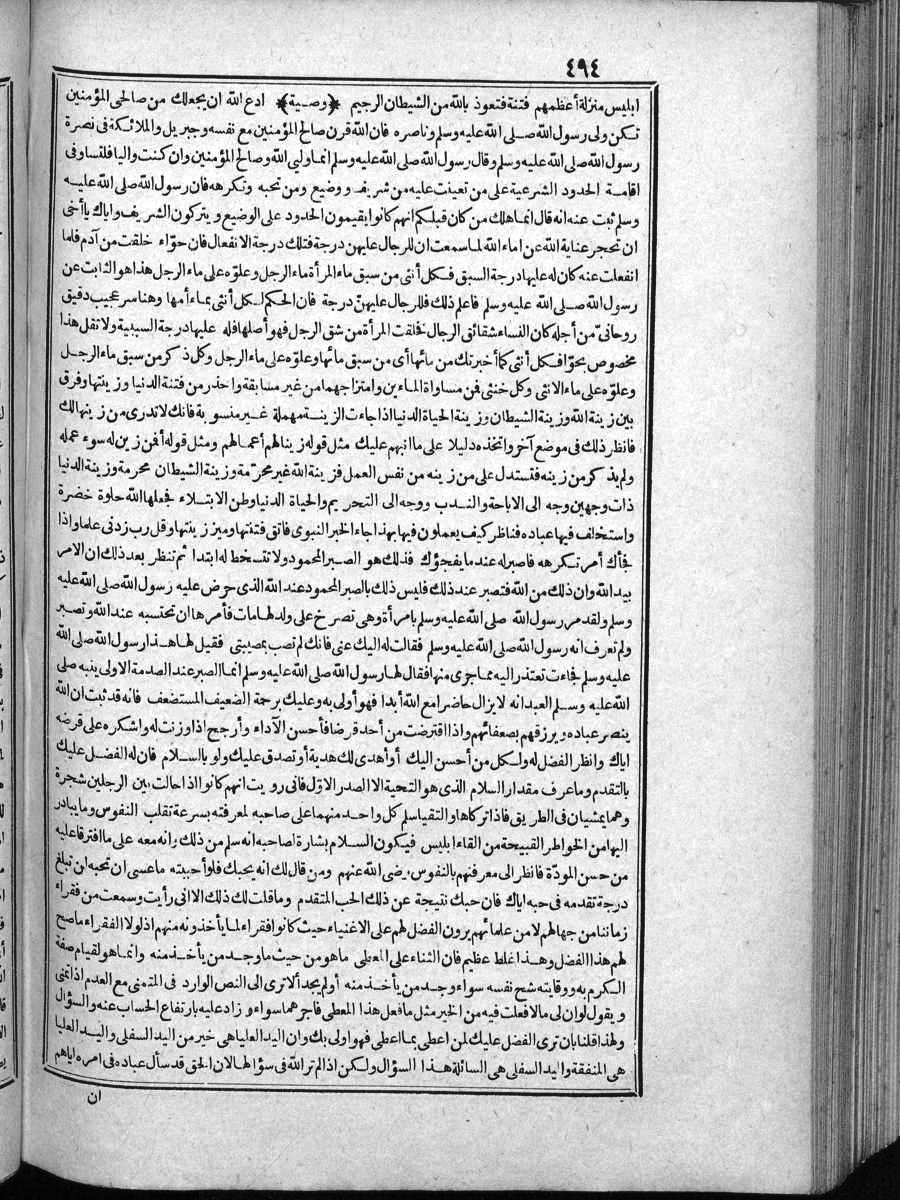 ٤٩٤
ابليس منزلة أعظمهم فتنة فتعوذ بالله من الشيطان الرجيم ﴿وصية﴾ ادع الله ان يجعلك من صالحى المؤمنين
تكن ولى رسول الله صلى الله عليه وسلم وناصره فان الله قرن صالح المؤمنين مع نفسه وجبريل والملائكة فى نصرة
رسول الله صلى الله عليه وسلم وقال رسول الله صلى الله عليه وسلم انما وليى الله وصالح المؤمنين وان كنت واليا فلتساوى فى
اقامة الحدود الشرعية على من تعينت عليه من شريف ووضيع ومن تحبه وتكرهه فان رسول الله صلى الله عليه
وسلم ثبت عنه انه قال انما هلك من كان قبلكم انهم كانوا يقيمون الحدود على الوضيع ويتركون الشريف واياك يا أخى
ان تحجر عناية الله عن اماء الله لما سمعت ان للرجال عليهن درجة فتلك درجة الانفعال فان حوّاء خلقت من آدم فلما
انفعلت عنه كان له عليها درجة السبق فكل أنثى من سبق ماء المرأة ماء الرجل وعلوّه على ماء الرجل هذا هو الثابت عن
رسول الله صلى الله عليه وسلم فاعلم ذلك فللرجال عليهنّ درجة فان الحكم لكل أنثى بماء أمها وهنا سر عجيب دقيق
روحانىّ من أجله كان النساء شقائق الرجال فخلقت المرأة من شق الرجل فهو أصلها فله عليها درجة السببية ولا نقل هذا
مخصوص بحوّا فكل أنثى كما أخبرتك من مائها أى من سبق مائها وعلوّه على ماء الرجل وكل ذكر من سبق ماء الرجل
وعلوّه على ماء الانثى وكل خنثى فمن مساواة الماءين وامتزاجهما من غير مسابقة واحذر من فتنة الدنيا وزينتها وفرق
بين زينة الله وزينة الشيطان وزينة الحياة الدنيا اذا جاءت الزينة مهملة غير منسوبة فانك لا تدرى من زينها لك
فانظر ذلك فى موضع آخر واتخذه دليلا على ما انبهم عليك مثل قوله زينا لهم أعمالهم ومثل قوله أفمن زين له سوء عمله
ولم يذكر من زينه فتستدل على من زينه من نفس العمل فزينة الله غير محرّمة وزينة الشيطان محرمة وزينة الدنيا
ذات وجهين وجه الى الاباحة والندب ووجه الى التحريم والحياة الدنيا وطن الابتلاء فجعلها الله حلوة خضرة
واستخلف فيها عباده فناظر كيف يعملون فيها بهذا جاء الخبر النبوى فاتق فتنتها وميز زينتها وقل رب زدنى علما واذا
فجأك أمر تكرهه فاصبر له عند ما يفجؤك فذلك هو الصبر المحمود ولا تتسخط له ابتدا ثم تنظر بعد ذلك ان الامر
بيد الله وان ذلك من الله فتصبر عند ذلك فليس ذلك بالصبر المحمود عند الله الذى حرض عليه رسول الله صلى الله عليه
وسلم ولقد مر رسول الله صلى الله عليه وسلم بامرأة وهى تصرخ على ولد لها مات فأمرها ان تحتسبه عند الله وتصبر
ولم تعرف انه رسول الله صلى الله عليه وسلم فقالت له اليك عنى فانك لم تصب بمصيبتى فقيل لها هذا رسول الله صلى الله
عليه وسلم فجاءت تعتذر اليه مما جرى منها فقال لها رسول الله صلى الله عليه وسلم انما الصبر عند الصدمة الاولى ينبه صلى
الله عليه وسلم العبد انه لا يزال حاضرا مع الله أبدا فهو أولى به وعليك برحمة الضعيف المستضعف فانه قد ثبت ان الله
ينصر عباده ويرزقهم بضعفائهم واذا اقترضت من أحد قرضا فأحسن الآداء وأرجح اذا وزنت له واشكره على قرضه
اياك وانظر الفضل له ولكل من أحسن اليك أو أهدى لك هدية أو تصدق عليك ولو بالسلام فان له الفضل عليك
بالتقدم وما عرف مقدار السلام الذى هو التحية الا الصدر الاوّل فانى رويت انهم كانوا اذا حالت بين الرجلين شجرة
وهما يمشيان فى الطريق فاذا تركاها والتقيا سلم كل واحد منهما على صاحبه لمعرفته بسرعة تقلب النفوس وما يبادر
اليها من الخواطر القبيحة من القاء ابليس فيكون السلام بشارة لصاحبه انه سلم من ذلك وانه معه على ما افترقا عليه
من حسن المودّة فانظر الى معرفتهم بالنفوس رضى الله عنهم ومن قال لك انه يحبك فلو أحببته ما عسى ان تحبه ان تبلغ
درجة تقدمه فى حبه اياك فان حبك نتيجة عن ذلك الحب المتقدم وما قلت لك ذلك الا انى رأيت وسمعت من فقراء
زماننا من جهالهم لا من علمائهم يرون الفضل لهم على الاغنياء حيث كانوا فقراء لما يأخذونه منهم اذ لولا الفقراء ما صح
لهم هذا الفضل وهذا غلط عظيم فان الثناء على المعطى ما هو من حيث ما وجد من يأخذ منه وانما هو لقيام صفة
الكرم به ووقايته شح نفسه سواء وجد من يأخذ منه أو لم يجد ألا ترى الى النص الوارد فى المتمنى مع العدم اذا تمنى
ويقول لو ان لى مالا فعلت فيه من الخير مثل ما فعل هذا المعطى فاجرهما سواء وزاد عليه بارتفاع الحساب عنه والسؤال
ولهذا قلنا بان ترى الفضل عليك لمن اعطى بما اعطى فهو اولى بك وان اليد العليا هى خير من اليد السفلى واليد العليا
هى المنفقة واليد السفلى هى السائلة هذا السؤال ولكن اذا لم تر الله فى سؤالها لان الحق قد سأل عباده فى امره اياهم
ان